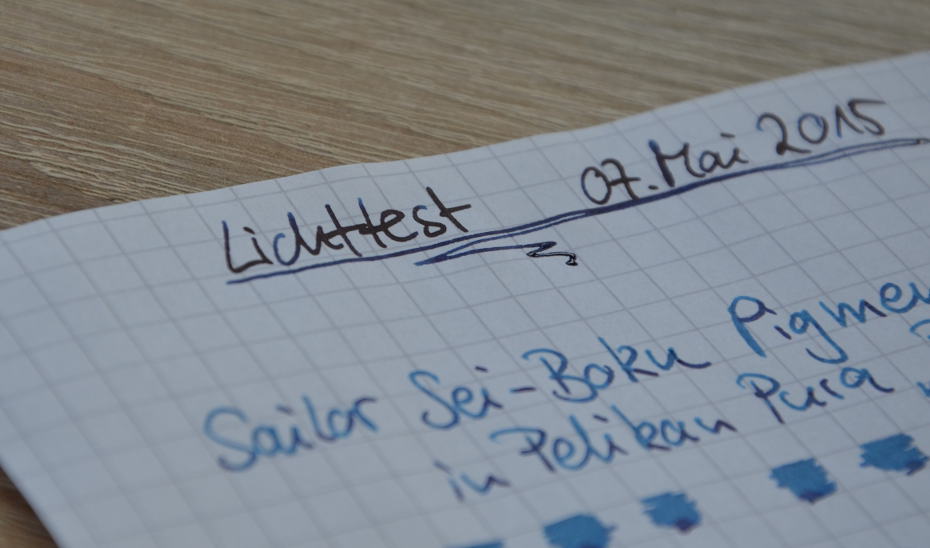 Lichttest 07. Mai 2015
Sailor Sei-Boku
in Pelikan Pura